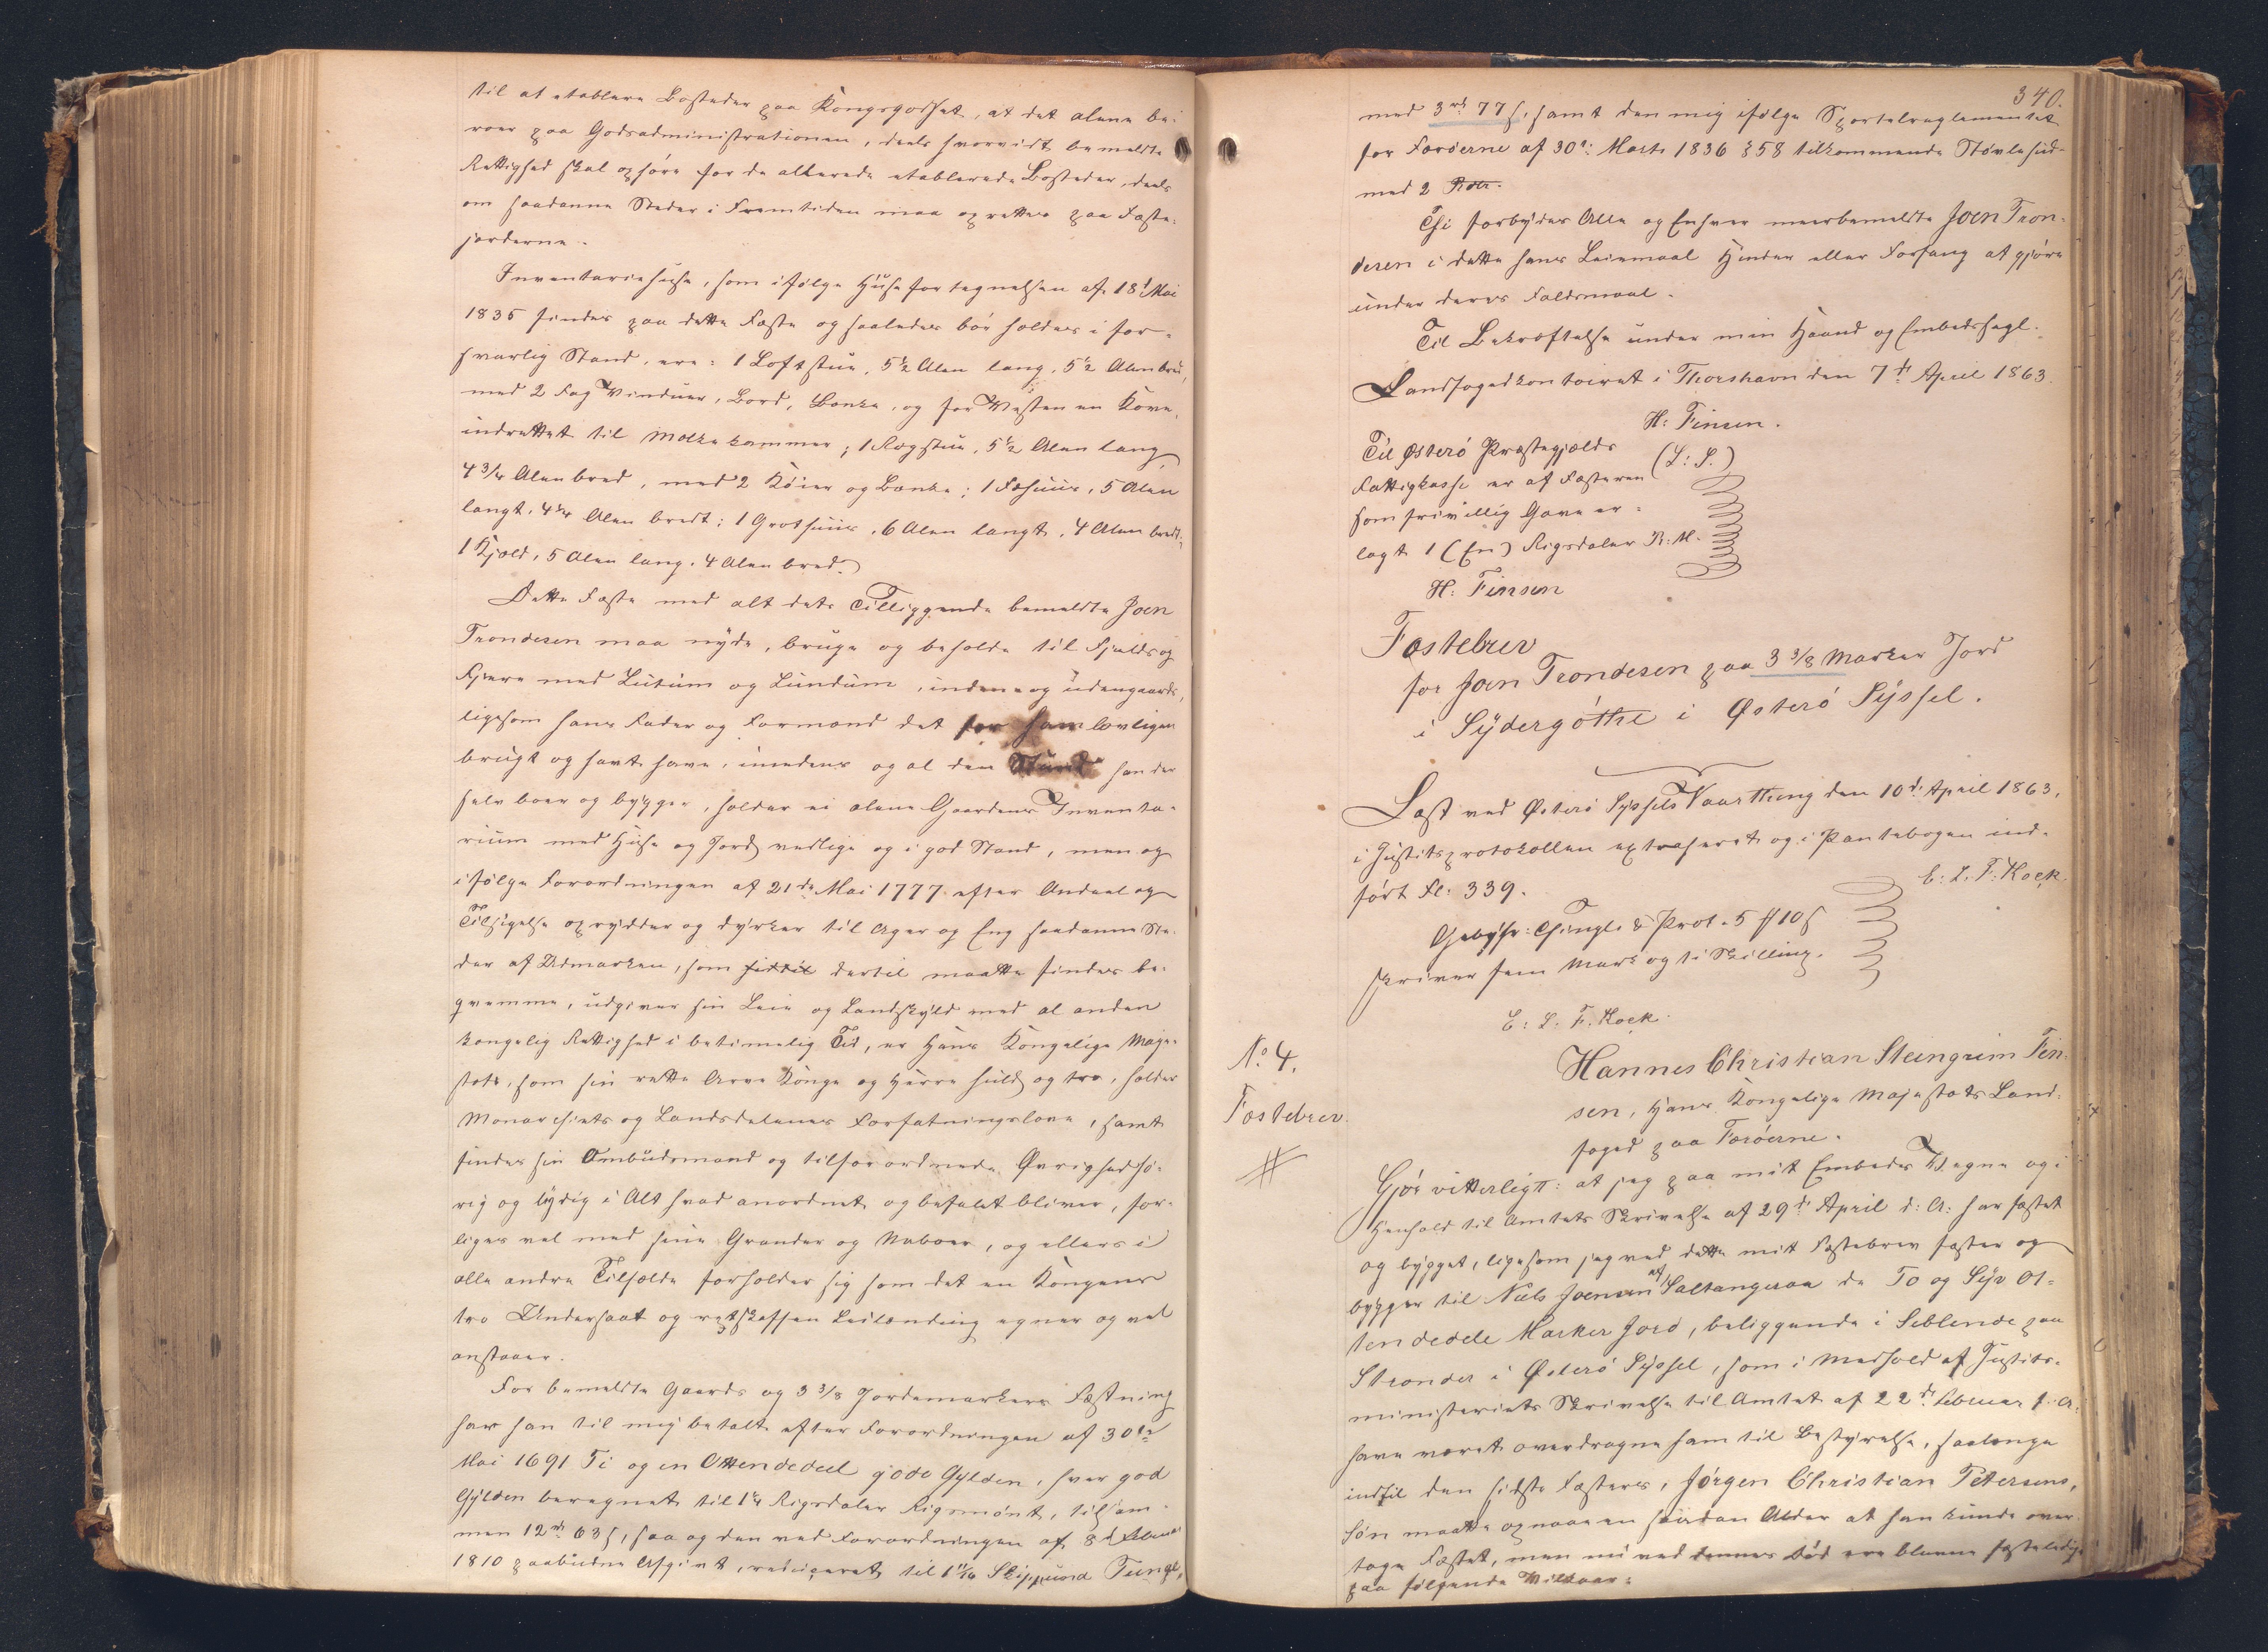 til at etablere Bosteder paa Kongsgodset, at det alene be-
roer paa Godsadministrationen, deels hvorvidt bemeldte
Rettighed skal ophøre for de allerede etablerede Bosteder, deels
om saadanne Steder i Fremtiden maa oprettes paa Fæste-
jorderne.
Inventariehuse, som ifølge Husefortegnelsen af 18d Mai
1835 findes paa dette Fæste og saaledes bør holdes i for-
svarlig Stand, ere: 1 Loftstue, 5½ Alen lang, 5½ Alen bred,
med 2 Fag Vinduer, Bord, Bænke, og for Vesten en Kove,
indrettet til Melkekammer; 1 Rogstue, 5½ Alen lang,
4¾ Alen bred, med 2 Køier og Bænke; 1 Fæhuus, 5 Alen
langt, 4¼ Alen bredt; 1 Grothuus, 6 Alen langt, 4 Alen bredt,
1 Hjeld, 5 Alen lang, 4 Alen bred.
Dette Fæste med alt dets Tilliggende bemeldte Joen
Trondesen maa nyde, bruge og beholde til Fjelds og
Fjære med Lutum og Lundum, inden og udengaards,
ligesom hans Fader og Formænd det før ham lovligen
brugt og havt have, imedens og al den Stund han der
selv boer og bygger, holder ei alene Gaardens Inventa-
rium med Huse og Jord vedlige og i god Stand, men og
ifølge Forordningen af 21de Mai 1777 efter Andeel og
Tilsigelse oprydder og dyrker til Ager og Eng saadanne Ste-
der af Udmarken, som hidtil dertil maatte findes be-
qvemme, udgiver sin Leie og Landskyld med al anden
kongelig Rettighed i betimelig Tid, er Hans Kongelige Maje-
stæt, som sin rette Arve Konge og Herre huld og tro, holder
Monarchiets og Landsdelenes Forfatningslove, samt
findes sin Ombudsmand og tilforordnede Øvrighed hø-
rig og lydig i Alt hvad anordnet og befalet bliver, for-
liges vel med sine Grander og Naboer, og ellers i
alle andre Tilfælde forholder sig som det en Kongens
tro Undersaat og retskaffen Leilænding egner og vel
anstaaer.
For bemeldte Gaards og 3 3/8 Jordemarkers Fæstning
har han til mig betalt efter Forordningen af 30te
Mai 1691 Ti og en Ottendedeel gode Gylden, hver god
Gylden beregnet til 1¼ Rigsdaler Rigsmønt, tilsam-
men 12rd 63s, saa og den ved Forordningen af 8d Februar
1810 paabudne Afgivt, reduceret til 1 11/16 Skippund Tunge,
340.
med 3rd 77s, samt den mig ifølge Sportelreglementet
for Færøerne af 30te Marts 1836 § 58 tilkommende Støvlehud
med 2 Rdlr.
Thi forbydes Alle og Enhver meerbemeldte Joen Tron-
desen i dette hans Leiemaal Hinder eller Forfang at gjøre
under deres Faldsmaal.
Til Bekræftelse under min Haand og Embedssegl.
Landfogedkontoiret i Thorshavn den 7de April 1863.
H: Finsen.
(L: S.)
Til Østerø Præstegjælds
Fattigkasse er af Fæsteren
som frivillig Gave er-
lagt 1 (En) Rigsdaler R: M.
H: Finsen
Fæstebrev
for Joen Trondesen paa 3 3/8 Marker Jord
i Sydergøthe i Østerø Syssel.
Læst ved Østerø Syssels Vaarthing den 10d April 1863,
i Justitsprotokollen extraheret og i Pantebogen ind-
ført Fl: 339.
E: L. F: Kock.
Gebyhr: Thingl. & Prot. 5 # 10s
skriver fem Mark og ti Skilling.
E: L: F. Kock.
No 4.
Fæstebrev.
Hannes Christian Steingrim Fin-
sen, Hans Kongelige Majestæts Land-
foged paa Færøerne.
Gjør vitterligt: at jeg paa mit Embeds Vegne og i
Henhold til Amtets Skrivelse af 29d April d: A: har fæstet
og bygget, ligesom jeg ved dette mit Fæstebrev fæster og
bygger til Niels Joensen af Saltangeraa de To og Syv Ot-
tendedele Marker Jord, beliggende i Seblende paa
Strender i Østerø Syssel, som i Medhold af Justits-
ministeriets Skrivelse til Amtet af 22d Februar f: A:
have været overdragne ham til Bestyrelse, saalænge
indtil den sidste Fæsters, Jørgen Christian Petersens,
Søn maatte opnaae en saadan Alder at han kunde over-
tage Fæstet, men nu ved dennes Død ere blevne fæsteledige
paa følgende Vilkaar: